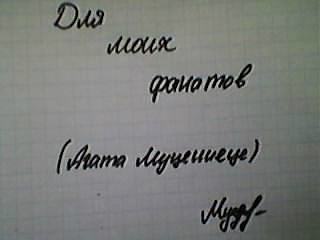 Для
моих
фанатов
(Агата Муцениеце)